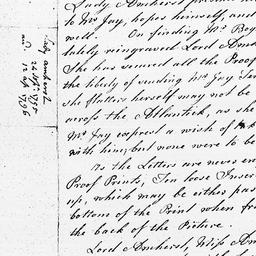 Lady Amherst
to Mrs Jay, hopes himself, and
well. On finding Mr Boy
lately reingraved Lord Amh
She has secured all the Proof
the liberty of sending Mrs Jay Ten
she flatters herself may not be
across the Atlantick, as she
Mr Jay exprest a wish of
with him; but none were to be
As the Letters are never en
Proof Prints, Ten loose Inscr
up, which may be either pas
bottom of the Print when fra
the back of the Picture.
Lord Amherst, Miss Am
Lady Amherst
24 Sept. 1795
and
12 Ap 1796